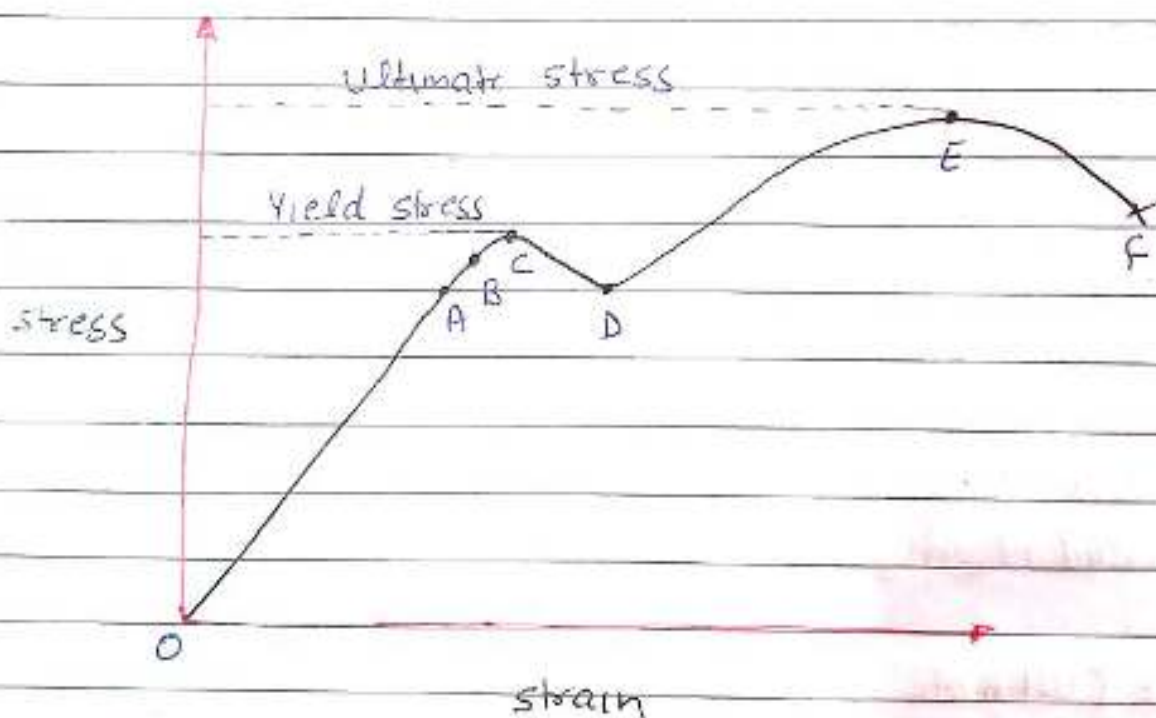 Ultimate stress
E
Yield stress
C
F
B
A
D
stress
O
strain